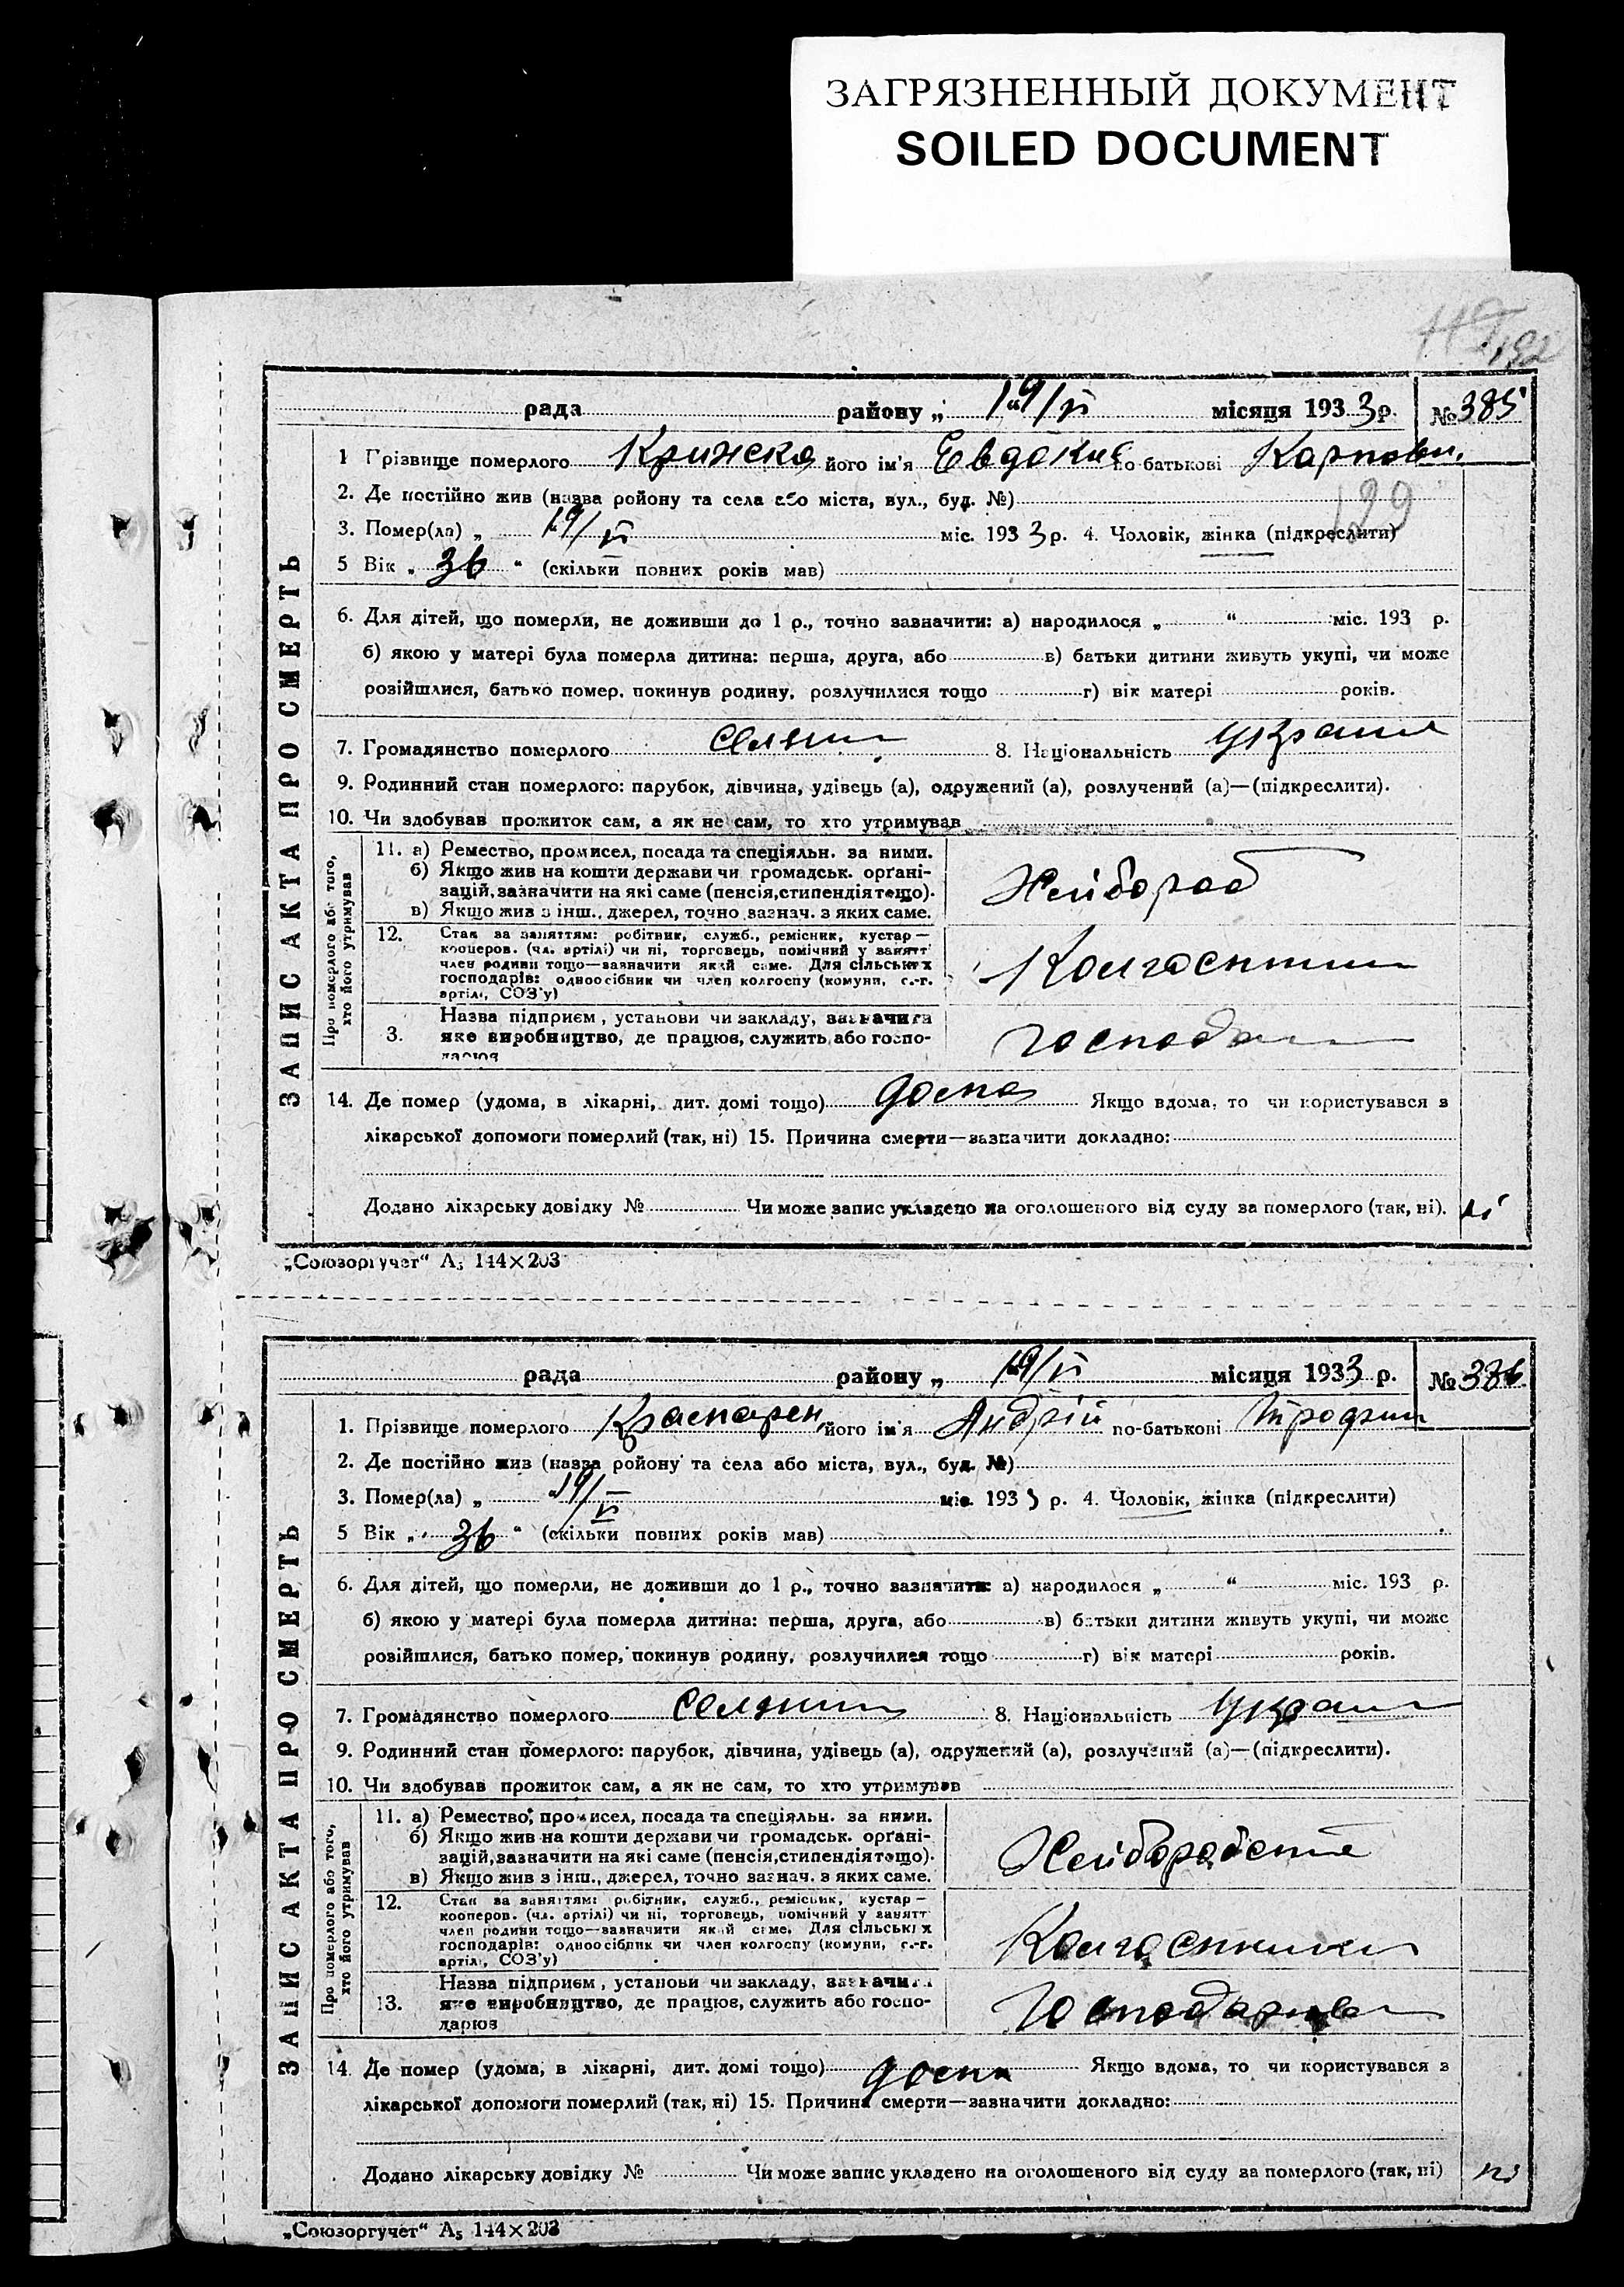 ЗАГРЯЗНЕННЫЙ ДОКУМЕНТ
SOILED DOCUMENT
192
рада району „ 19/VI місяця 1933 р. № 385
1 Прізвище померлого його ім'я Евдокия по батькові Карповн.
199
2. Де постійно жив (назва ройону та села або міста, вул., буд. №)
3. Помер(ла) „ 19/VI міс. 1933 р. 4. Чоловік, жінка (підкреслити)
5 Вік „ 36 “ (скільки повних років мав)
6. Для дітей, що померли, не доживши до 1 р., точно зазначити: а) народилося „ “ міс. 193 р.
б) якою у матері була померла дитина: перша, друга, або в) батьки дитини живуть укупі, чи може
розійшлися, батько помер, покинув родину, розлучилися тощо г) вік матері років.
7. Громадянство померлого 8. Національність
9. Родинний стан померлого: парубок, дівчина, удівець (а), одружений (а), розлучений (а)—(підкреслити).
10. Чи здобував прожиток сам, а як не сам, то хто утримував
ЗАПИС АКТА ПРО СМЕРТЬ
Про померлого або того,
хто його утримував
11. а) Ремество, промисел, посада та спеціяльн. за ними.
б) Якщо жив на кошти держави чи громадськ. орґані-
зацій, зазначити на які саме (пенсія, стипендія тощо).
в) Якщо жив з інш., джерел, точно зазнач. з яких саме.
12. Стан за заняттям: робітник, служб., ремісник, кустар —
кооперов. (чл. артілі) чи ні, торговець, помічний у занятт
член родини тощо—зазначити який саме. Для сільських
господарів: одноосібник чи член колгоспу (комуни, с.-г.
артілі, СОЗ'у)
Назва підприєм, установи чи закладу, зазначити
3. яке виробництво, де працює, служить, або госпо-
дарює
14. Де помер (удома, в лікарні, дит. домі тощо) дома Якщо вдома, то чи користувався з
лікарської допомоги померлий (так, ні) 15. Причина смерти—зазначити докладно:
Додано лікарську довідку № Чи може запис укладено на оголошеного від суду за померлого (так, ні). ні
„Союзоргучет“ А5 144×203
рада району „ 19/VI місяця 1933 р. № 386
1. Прізвище померлого його ім'я Андрій по-батькові
2. Де постійно жив (назва ройону та села або міста, вул., буд. №)
3. Помер(ла) „ 19/VI міс. 1933 р. 4. Чоловік, жінка (підкреслити)
5 Вік „ 36 “ (скільки повних років мав)
6. Для дітей, що померли, не доживши до 1 р., точно зазначити: а) народилося „ “ міс. 193 р.
б) якою у матері була померла дитина: перша, друга, або в) батьки дитини живуть укупі, чи може
розійшлися, батько помер, покинув родину, розлучилися тощо г) вік матері років.
7. Громадянство померлого 8. Національність
9. Родинний стан померлого: парубок, дівчина, удівець (а), одружений (а), розлучений (а)—(підкреслити).
10. Чи здобував прожиток сам, а як не сам, то хто утримував
ЗАПИС АКТА ПРО СМЕРТЬ
Про померлого або того,
хто його утримував
11. а) Ремество, промисел, посада та спеціяльн. за ними.
б) Якщо жив на кошти держави чи громадськ. орґані-
зацій, зазначити на які саме (пенсія, стипендія тощо).
в) Якщо жив з інш., джерел, точно зазнач. з яких саме.
12. Стан за заняттям: робітник, служб., ремісник, кустар —
кооперов. (чл. артілі) чи ні, торговець, помічний у занятт
член родини тощо—зазначити який саме. Для сільських
господарів: одноосібник чи член колгоспу (комуни, с.-г.
артілі, СОЗ'у)
Назва підприєм, установи чи закладу, зазначити
13. яке виробництво, де працює, служить або госпо-
дарює
14. Де помер (удома, в лікарні, дит. домі тощо) дома Якщо вдома, то чи користувався з
лікарської допомоги померлий (так, ні) 15. Причина смерти—зазначити докладно:
Додано лікарську довідку № Чи може запис укладено на оголошеного від суду за померлого (так, ні) ні
„Союзоргучет“ А5 144×203